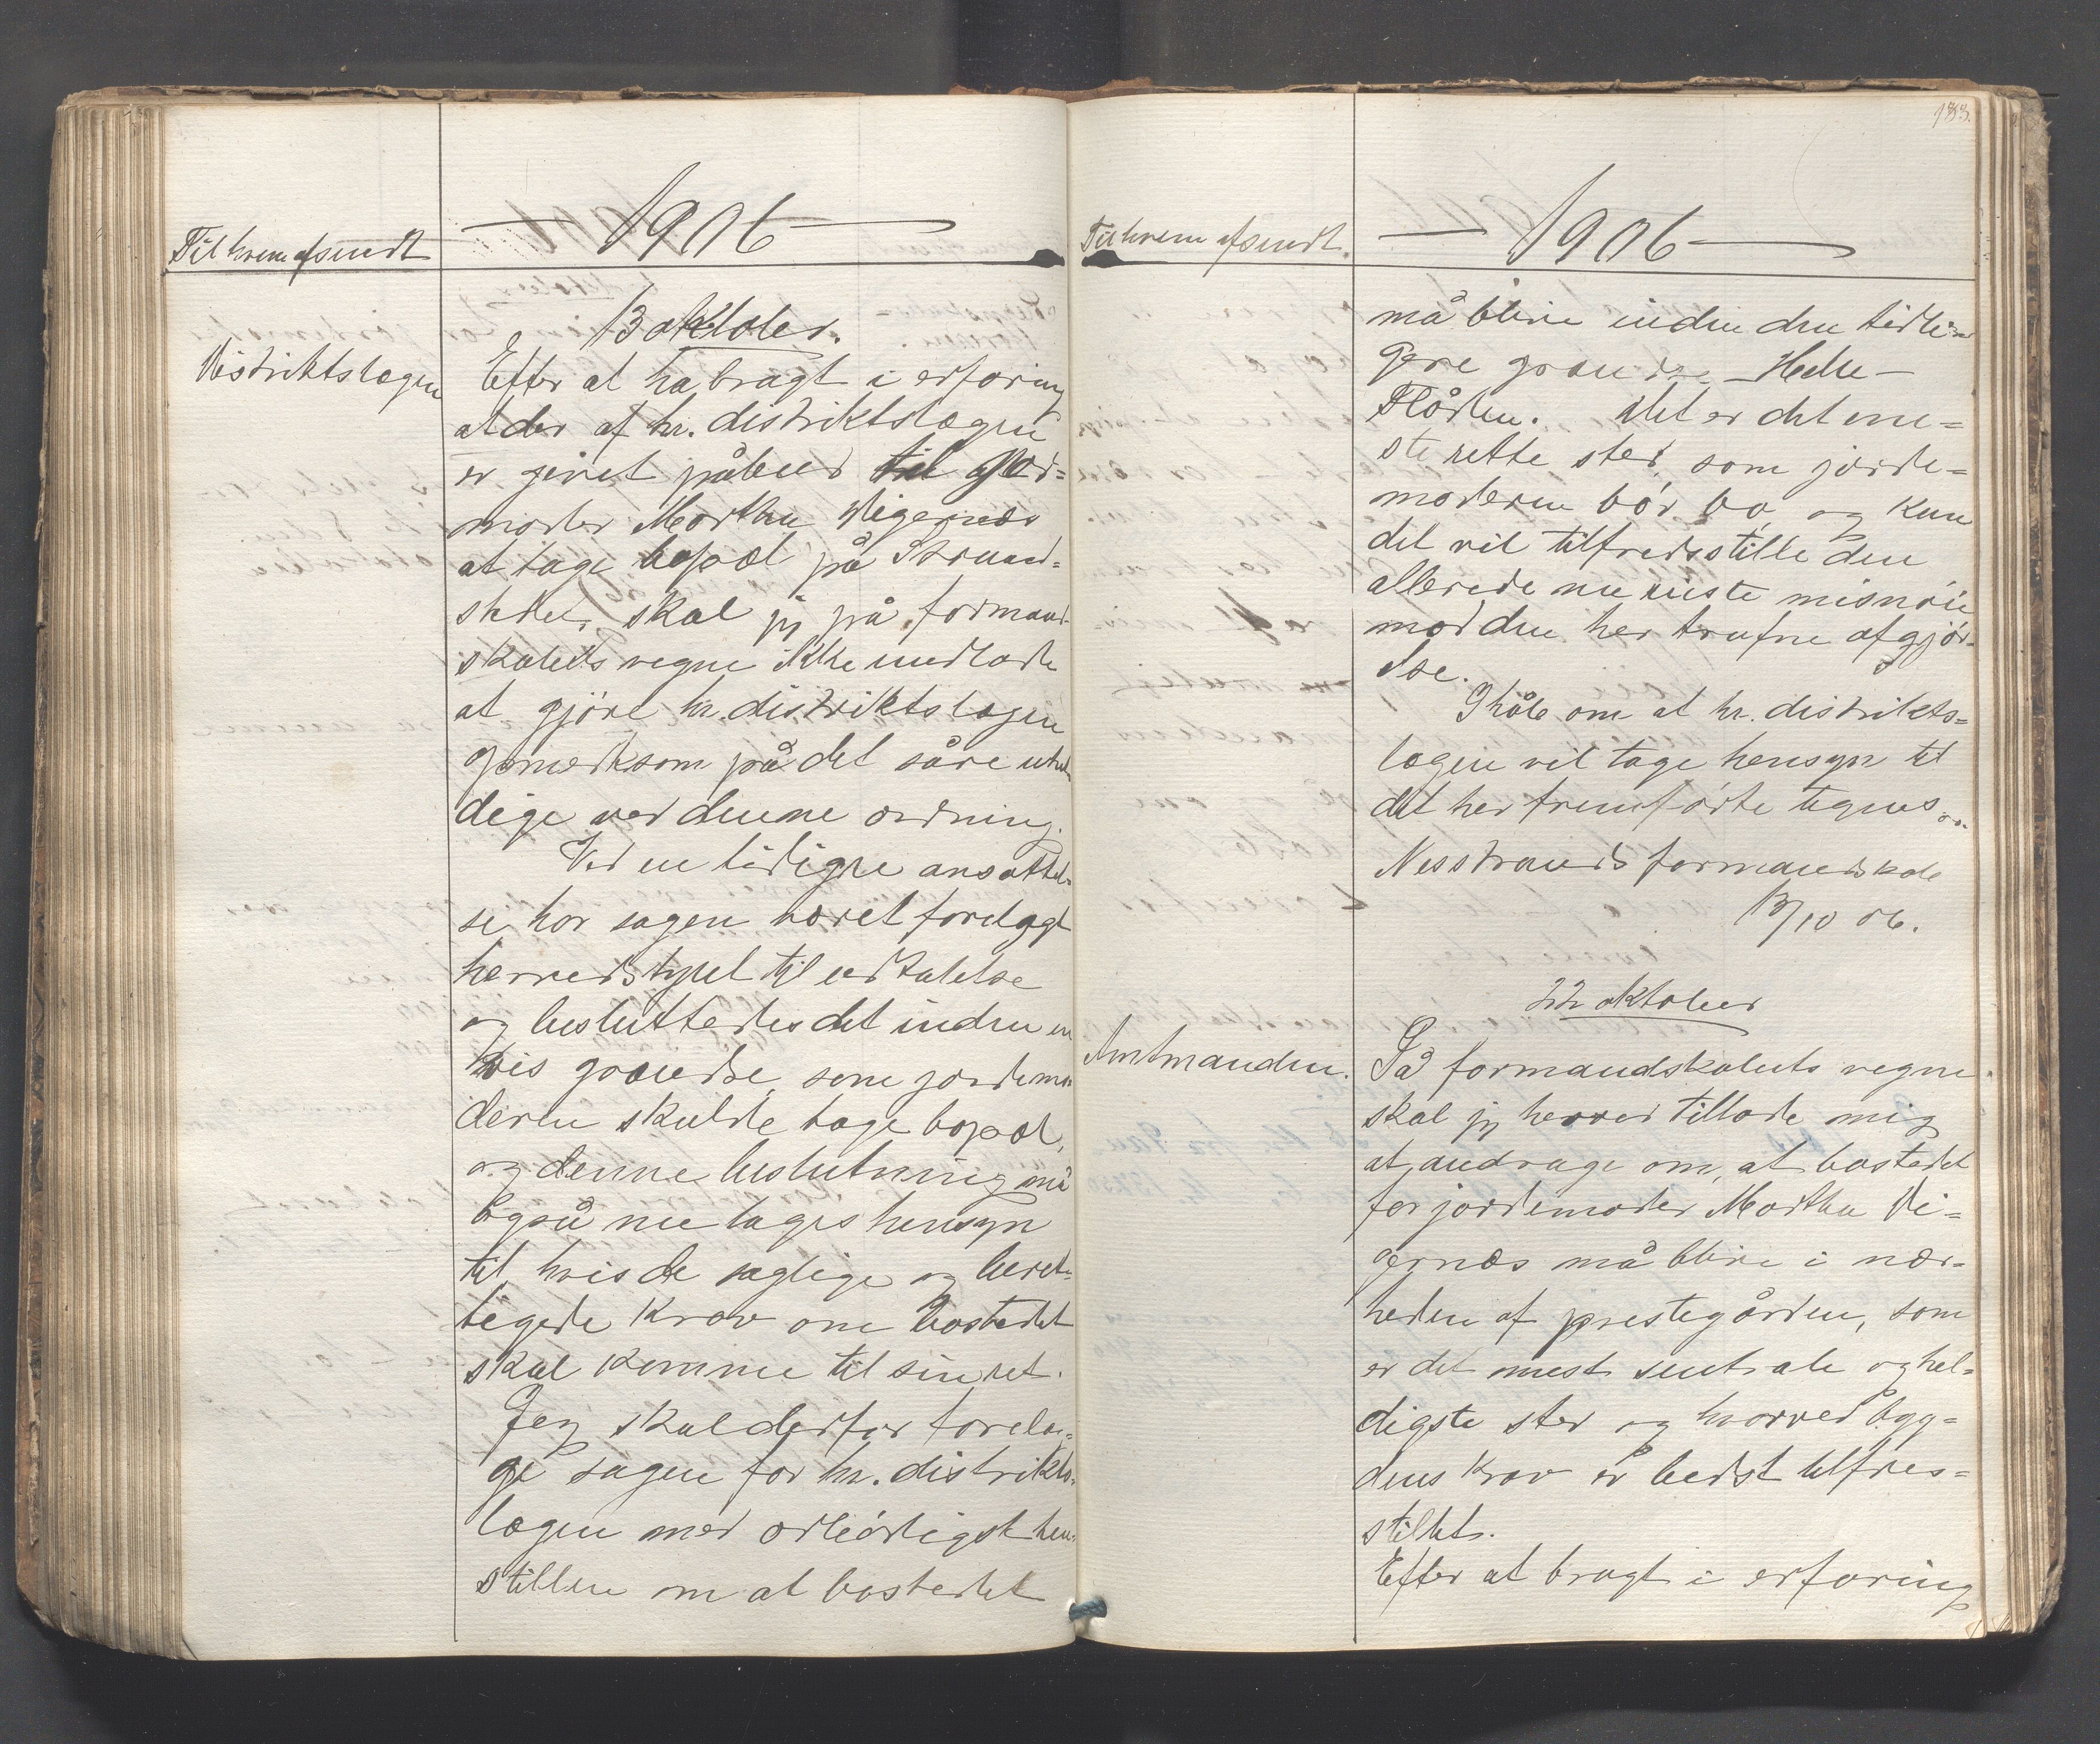 Til hvem afsendt
1906
13 oktober.
Distriktslægen
Efter at ha bragt i erfaring
at der af hr. distriktslægen
er givet påbud til jord=
moder Marthe Vigenæs
at tage bopæl på Strand=
stedet, skal jeg på formand=
skabets vegne ikke undlade
at gjøre hr. distriktslægen
opmerksom på det såre uhel=
dige ved denne ordning.
Ved en tidligre ansættel=
se har sagen været forelagt
herredstyret til udtalelse
og besluttedes det inden en
vis grændse, som jordemo=
deren skulde tage bopæl,
og denne beslutning må
også nu tages hensyn
til, hvis de saglige og beret=
tigede krav om bostedet
skal komme til sin ret.
Jeg skal derfor forelæ=
ge sagen for hr. distrikts=
lægen med ærbødigst hen=
stillen om at bostedet
183.
Til hvem afsendt.
1906
må blive inden den tidli=
gere grændse Helle-
Flåten. Det er det ene=
ste rette sted, som jorde=
moderen bør bo, og kun
det vil tilfredsstille den
allerede nu viste misnøie
mod den her trufne afgjør=
else.
I håb om at hr. distrikts=
lægen vil tage hensyn til
det her fremførte tegnes
Nesstrands formandskab
13/10 06.
22 oktober
Amtmanden.
På formandskabets vegne
skal jeg herved tillade mig
at andrage om, at bostedet
for jordemoder Marthe Vi=
genæs må blive i nær=
heden af prestegården, som
er det mest sentrale og hel=
digste sted og hvorved byg=
dens krav er bedst tilfreds=
stillet.
Efter at bragt i erfaring